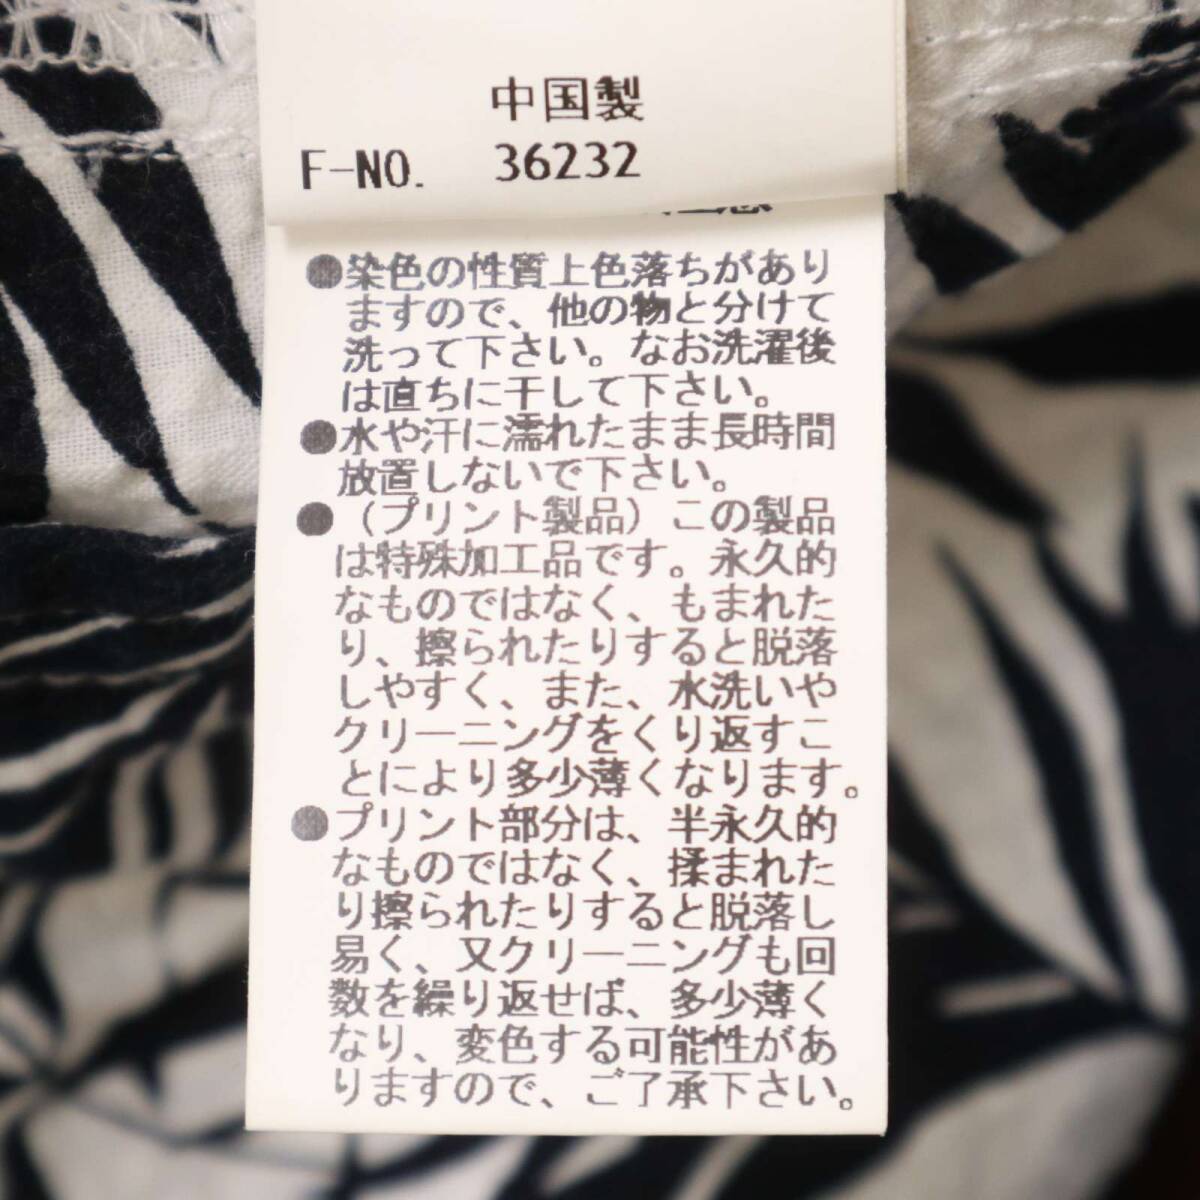 中国製
F-NO. 36232
●染色の性質上色落ちがあり
ますので、他の物と分けて
洗って下さい。なお洗濯後
は直ちに干して下さい。
●水や汗に濡れたまま長時間
放置しないで下さい。
●（プリント製品）この製品
は特殊加工品です。永久的
なものではなく、もまれた
り、擦られたりすると脱落
しやすく、また、水洗いや
クリーニングをくり返すこ
とにより多少薄くなります。
●プリント部分は、半永久的
なものではなく、揉まれた
り擦られたりすると脱落し
易く、又クリーニングも回
数を繰り返せば、多少薄く
なり、変色する可能性があ
りますので、ご了承下さい。